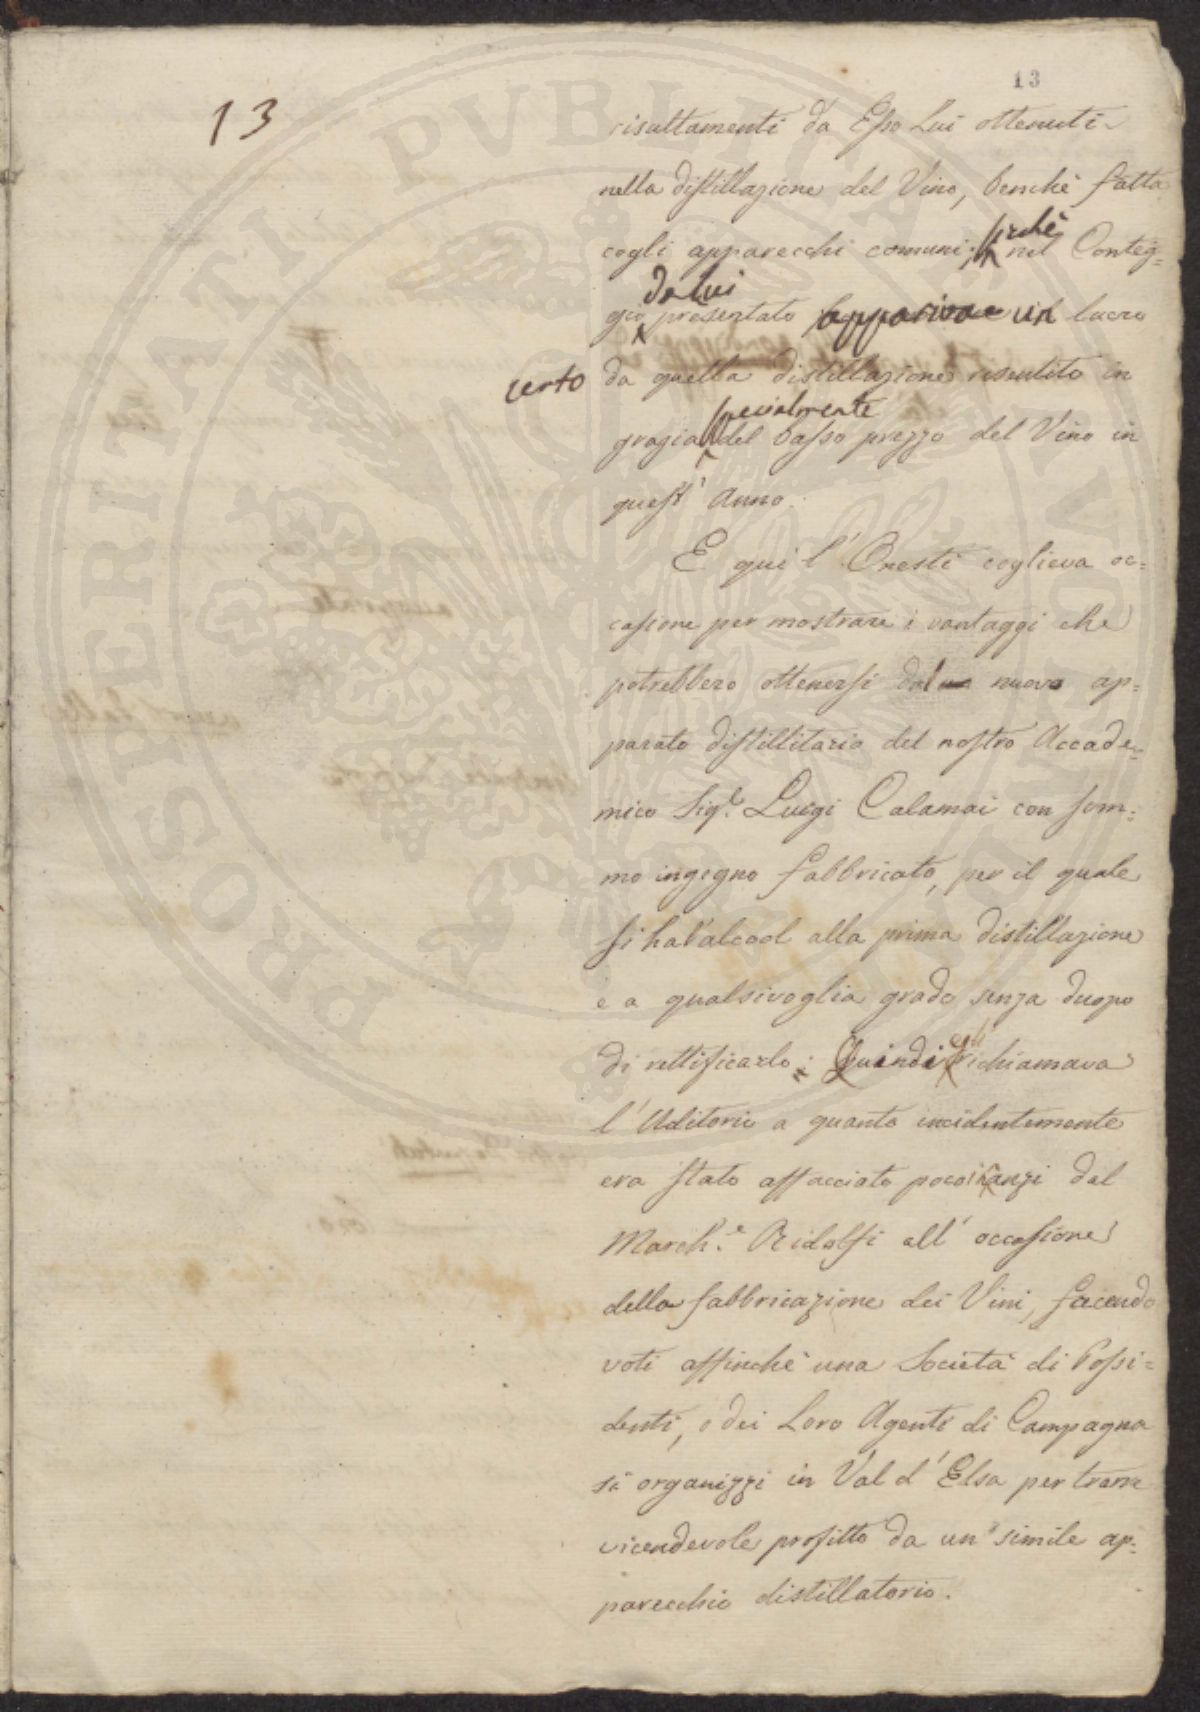 13
13
risultamenti da Esso Lui ottenuti
nella distillazione del Vino, benchè fatta
cogli apparecchi comuni; perchè nel Conteg=
gio da Lui presentato appariva un lucro
certo da quella distillazione risentito in
grazia specialmente del basso prezzo del Vino in
quest' Anno.
E qui l' Onesti coglieva oc=
casione per mostrare i vantaggi che
potrebbero ottenersi dal nuovo ap=
parato distillitario del nostro Accade=
mico Sig.e Luigi Calamai con som=
mo ingegno fabbricato, per il quale
si ha l'alcool alla prima distillazione
e a qualsivoglia grado senza duopo
di rettificarlo: Quindi egli richiamava
l' Uditorio a quanto incidentemente
era stato affacciato poco inanzi dal
March.e Ridolfi all' occasione
della fabbricazione dei Vini, facendo
voti affinchè una Società di Possi=
denti, o dei Loro Agenti di Campagna
si organizzi in Val d' Elsa per trarre
vicendevole profitto da un simile ap=
parecchio distillatorio.
PROSPERITATI PVBLICAE